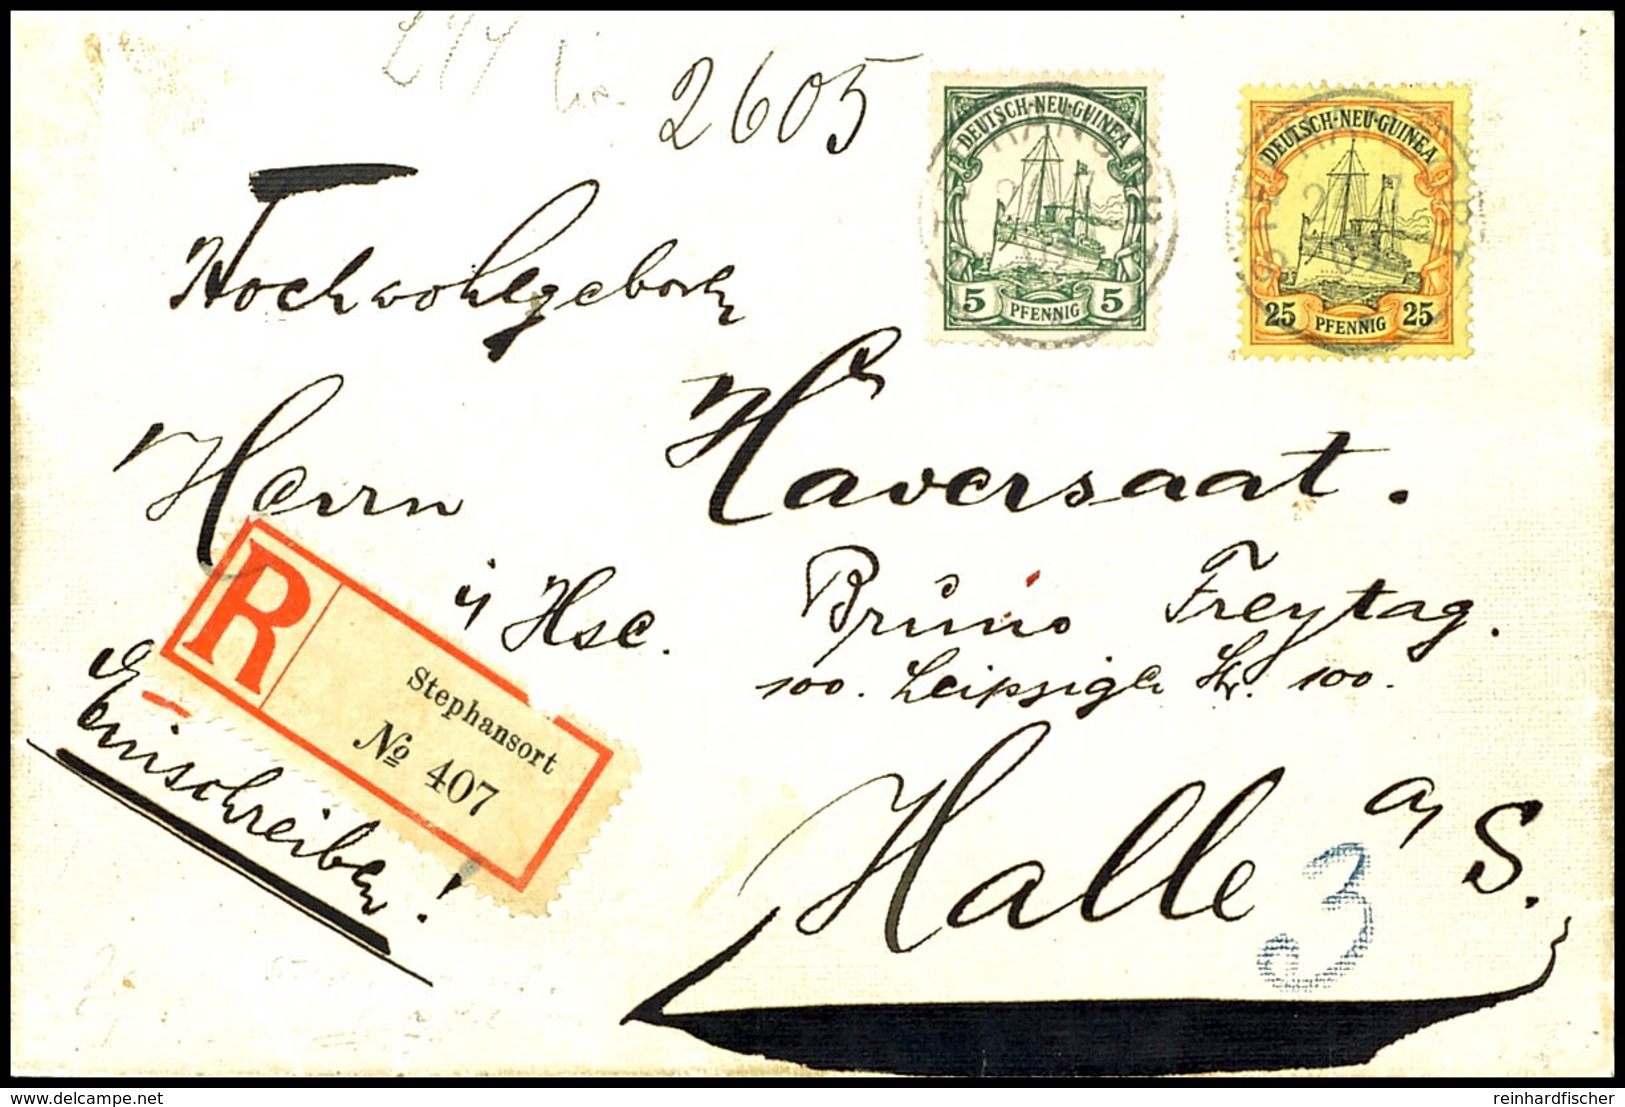 2605
DEUTSCH-NEU-GUINEA
5 PFENNIG 5
DEUTSCH-NEU-GUINEA
25 PFENNIG 25
STEPHANSORT
Hochwohlgeboren
Herrn Haversaat.
i/ Hse. Bruno Freytag.
100. Leipziger Str. 100.
Halle a/ S.
3
R
Stephansort
No 407
Einschreiben!
www.delcampe.net
reinhardfischer